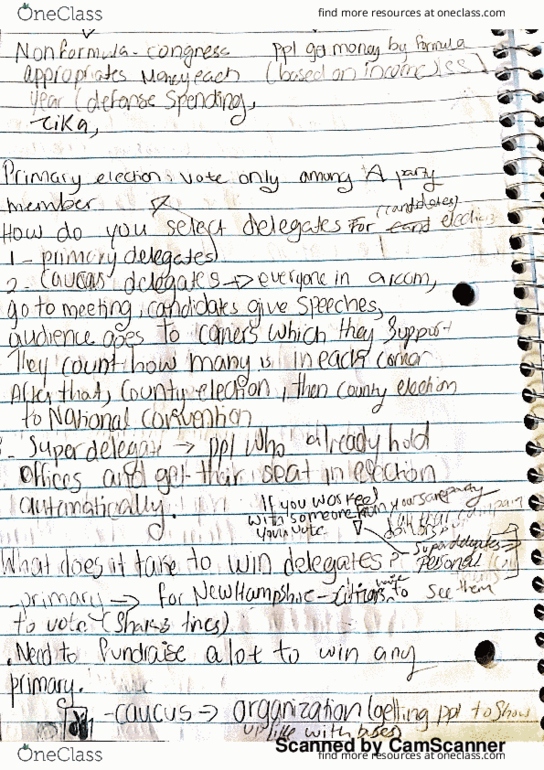 OneClass
find more resources at oneclass.com
Nonformula - congress ppl get money by formula
appropriates money each (based on income) (SS)
year (defense spending,
zika,
Primary election: vote only among A party
member
(candidates)
How do you select delegates for election
1 - primary delegates
2 - caucas delegates → everyone in a room,
go to meeting, candidates give speeches,
audience goes to corners which they support
They count how many is in each corner
After that, county election, then county election
to National convention
- Super delegate → ppl who already hold
offices and get their seat in election
automatically.
If you was
with someone from your same party
your vote
What does it take to win delegates?
- Superdelegates →
Personal
- primary → for New Hampshire - citizens to see them
to vote (shares lines)
. Need to fundraise a lot to win any
primary.
- caucus → organization (getting ppl to show
up like with buses)
Scanned by CamScanner
OneClass
find more resources at oneclass.com